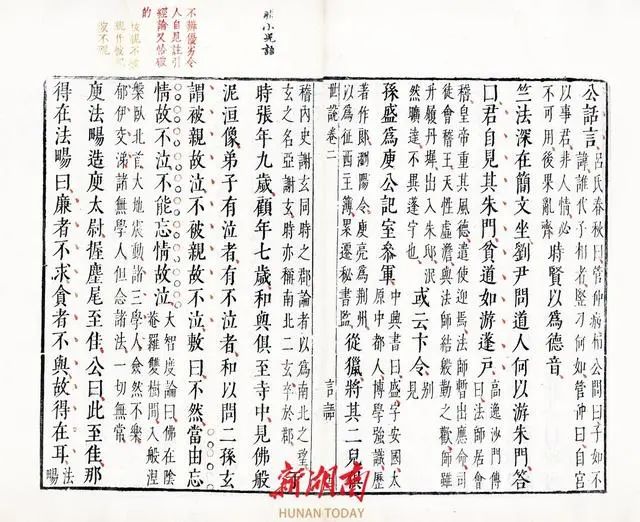 不辨優劣令
人自見註引
經論又恰破
的
公話言呂氏春秋曰管仲病桓公問曰子如不
諱誰代子相者竪刁何如管仲曰自宮
以事君非人情必
不可用後果亂齊時賢以爲德音
竺法深在簡文坐劉尹問道人何以游朱門答
曰君自見其朱門貧道如游蓬戶高逸沙門傳
曰法師居會
稽皇帝重其風德遣使迎焉法師暫出應命司
徒會稽王天性虛澹與法師結殷勤之歡師雖
升履丹墀出入朱邸泯
然曠達不異蓬宇也或云卞令別
見
孫盛爲庾公記室參軍中興書曰盛字安國太
原中都人博學強識歷
著作郎瀏陽令庾亮爲荊州
以爲征西主簿累遷秘書監從獵將其二兒俱
世說卷二
言語
稽內史謝玄同時之郡論者以爲南北之望
玄之名亞謝玄時亦稱南北二玄卒於郡
時張年九歲顧年七歲和與俱至寺中見佛般
泥洹像弟子有泣者有不泣者和以問二孫玄
謂被親故泣不被親故不泣敷曰不然當由忘
情故不泣不能忘情故泣大智度論曰佛在陰
菴羅雙樹間入般涅
槃臥北首大地震動諸三學人僉然不樂
郁伊交涕諸無學人但念諸法一切無常
庾法暢造庾太尉握麈尾至佳公曰此至佳那
得在法暢曰廉者不求貪者不與故得在耳法
暢
新湖南
HUNAN TODAY